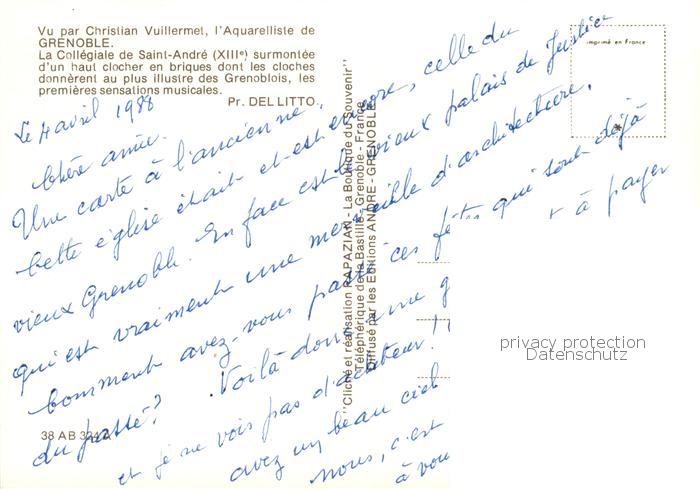 Vu par Christian Vuillermet, l'Aquarelliste de
GRENOBLE.
La Collégiale de Saint-André (XIIIe) surmontée
d'un haut clocher en briques dont les cloches
donnèrent au plus illustre des Grenoblois, les
premières sensations musicales.
Pr. DEL LITTO.
imprimé en France
Le 4 avril 1988
Chère amie.
Une carte à l'ancienne,
Cette église était et est encore, celle du
vieux Grenoble. En face est le vieux palais de Justice
qui est vraiment une merveille d'architecture.
Comment avez-vous passé ces fêtes qui sont déjà
du passé? Voilà donc une à payer
et je ne vois pas d'acheteur!
avez un beau ciel
nous, c'est
à vou
"Cliché et réalisation RAPAZIAN - La Boutique du Souvenir"
Téléphérique de la Bastille - Grenoble - France
Diffusé par les Editions ANDRE - GRENOBLE
38 AB
privacy protection
Datenschutz